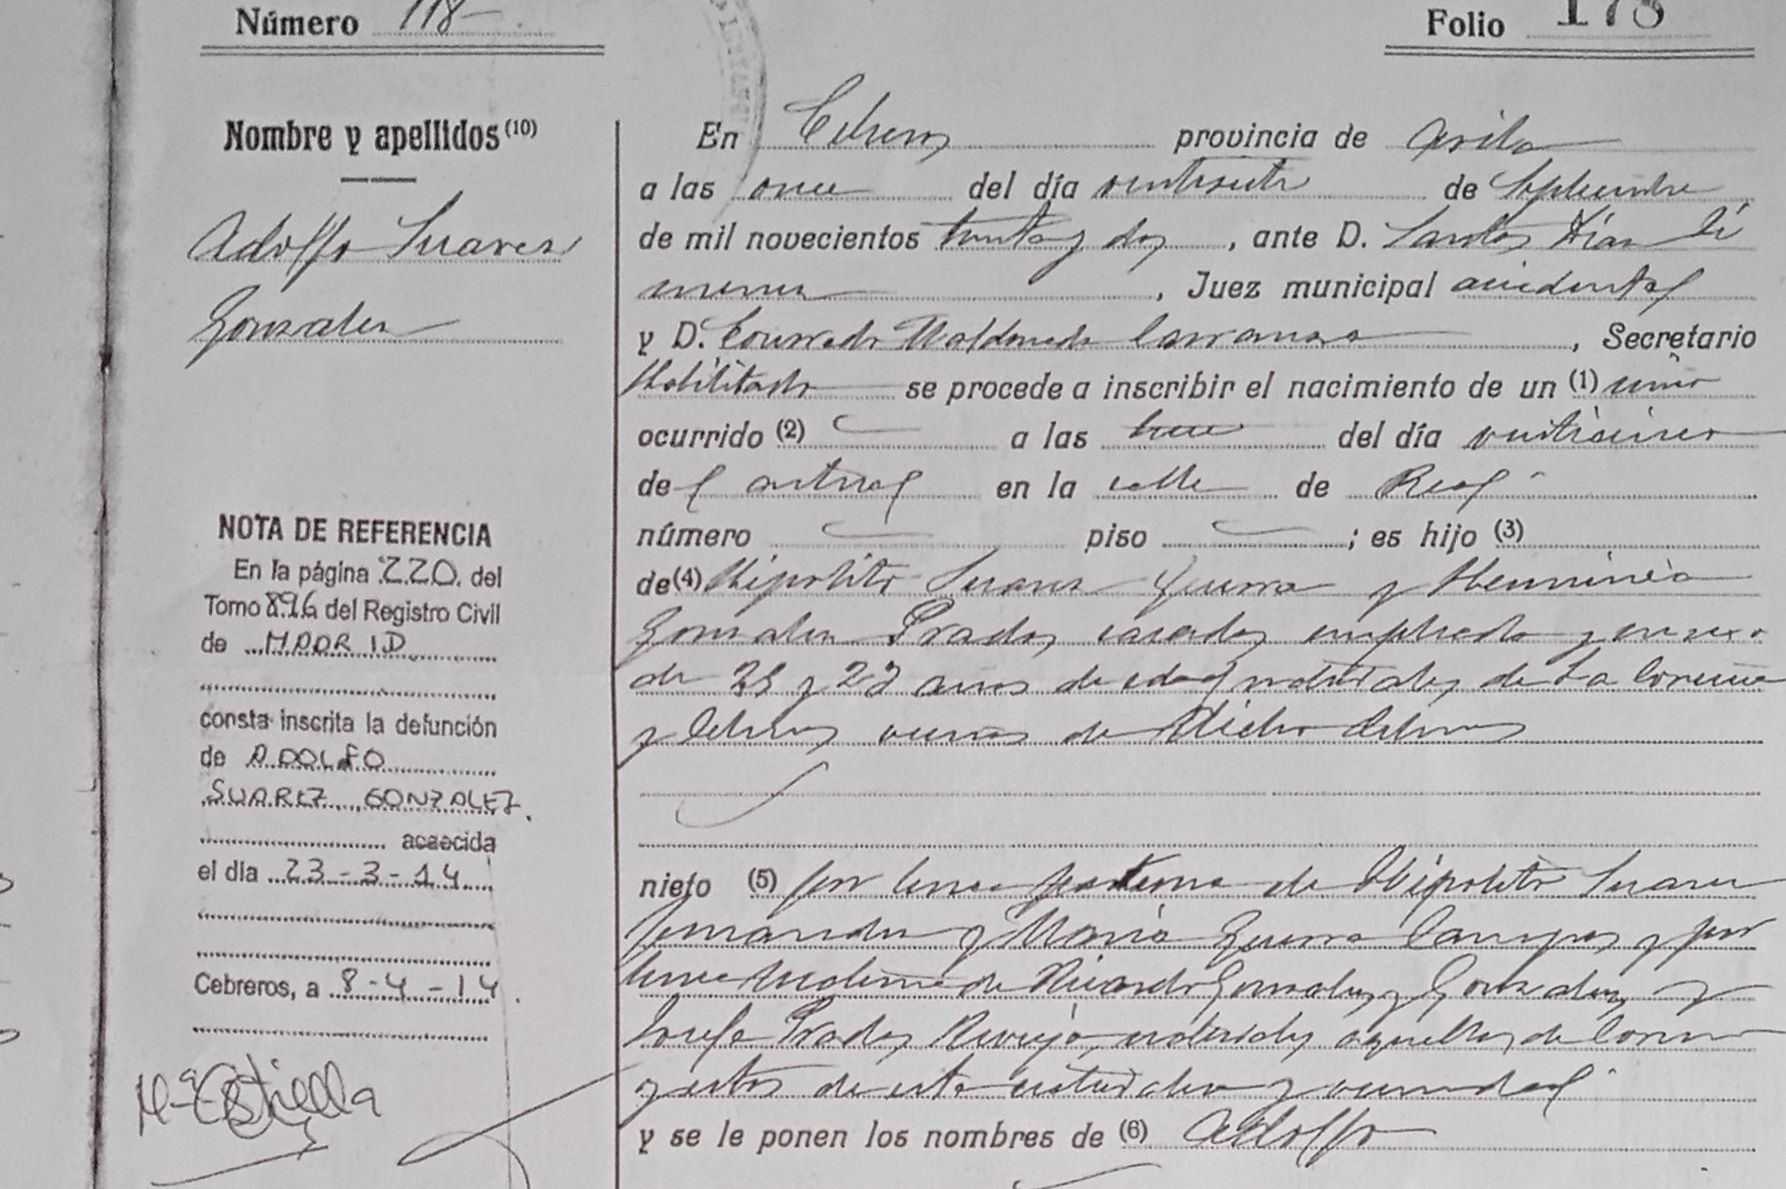 Número 118
Folio 178
Nombre y apellidos (10)
Adolfo Suarez
Gonzalez
NOTA DE REFERENCIA
En la página 220 del
Tomo 896 del Registro Civil
de MADRID
consta inscrita la defunción
de ADOLFO
SUAREZ GONZALEZ
acaecida
el día 23-3-14
Cebreros, a 8-4-14
Mª Estrella
En Cebreros provincia de Avila
a las once del día veintisiete de Septiembre
de mil novecientos treinta y dos, ante D. Santos Díaz Ji
menez, Juez municipal accidental
y D. Conrado Maldonado Carranza, Secretario
Habilitado se procede a inscribir el nacimiento de un (1) niño
ocurrido (2) a las trece del día veinticinco
del actual en la calle de Real
número piso ; es hijo (3)
de (4) Hipolito Suarez Guerra y Herminia
Gonzalez Prados, casados, empleado y su sexo
de 25 y 22 años de edad, naturales de La Coruña
y Cebreros vecinos de dicho Cebreros
nieto (5) por linea paterna de Hipolito Suarez
Fernandez y Maria Guerra Campos, y por
linea materna de Ricardo Gonzalez y Gonzalez, y
Josefa Prados, naturales aquellos de Coruña
y estos de esta naturaleza y vecindad
y se le ponen los nombres de (6) Adolfo